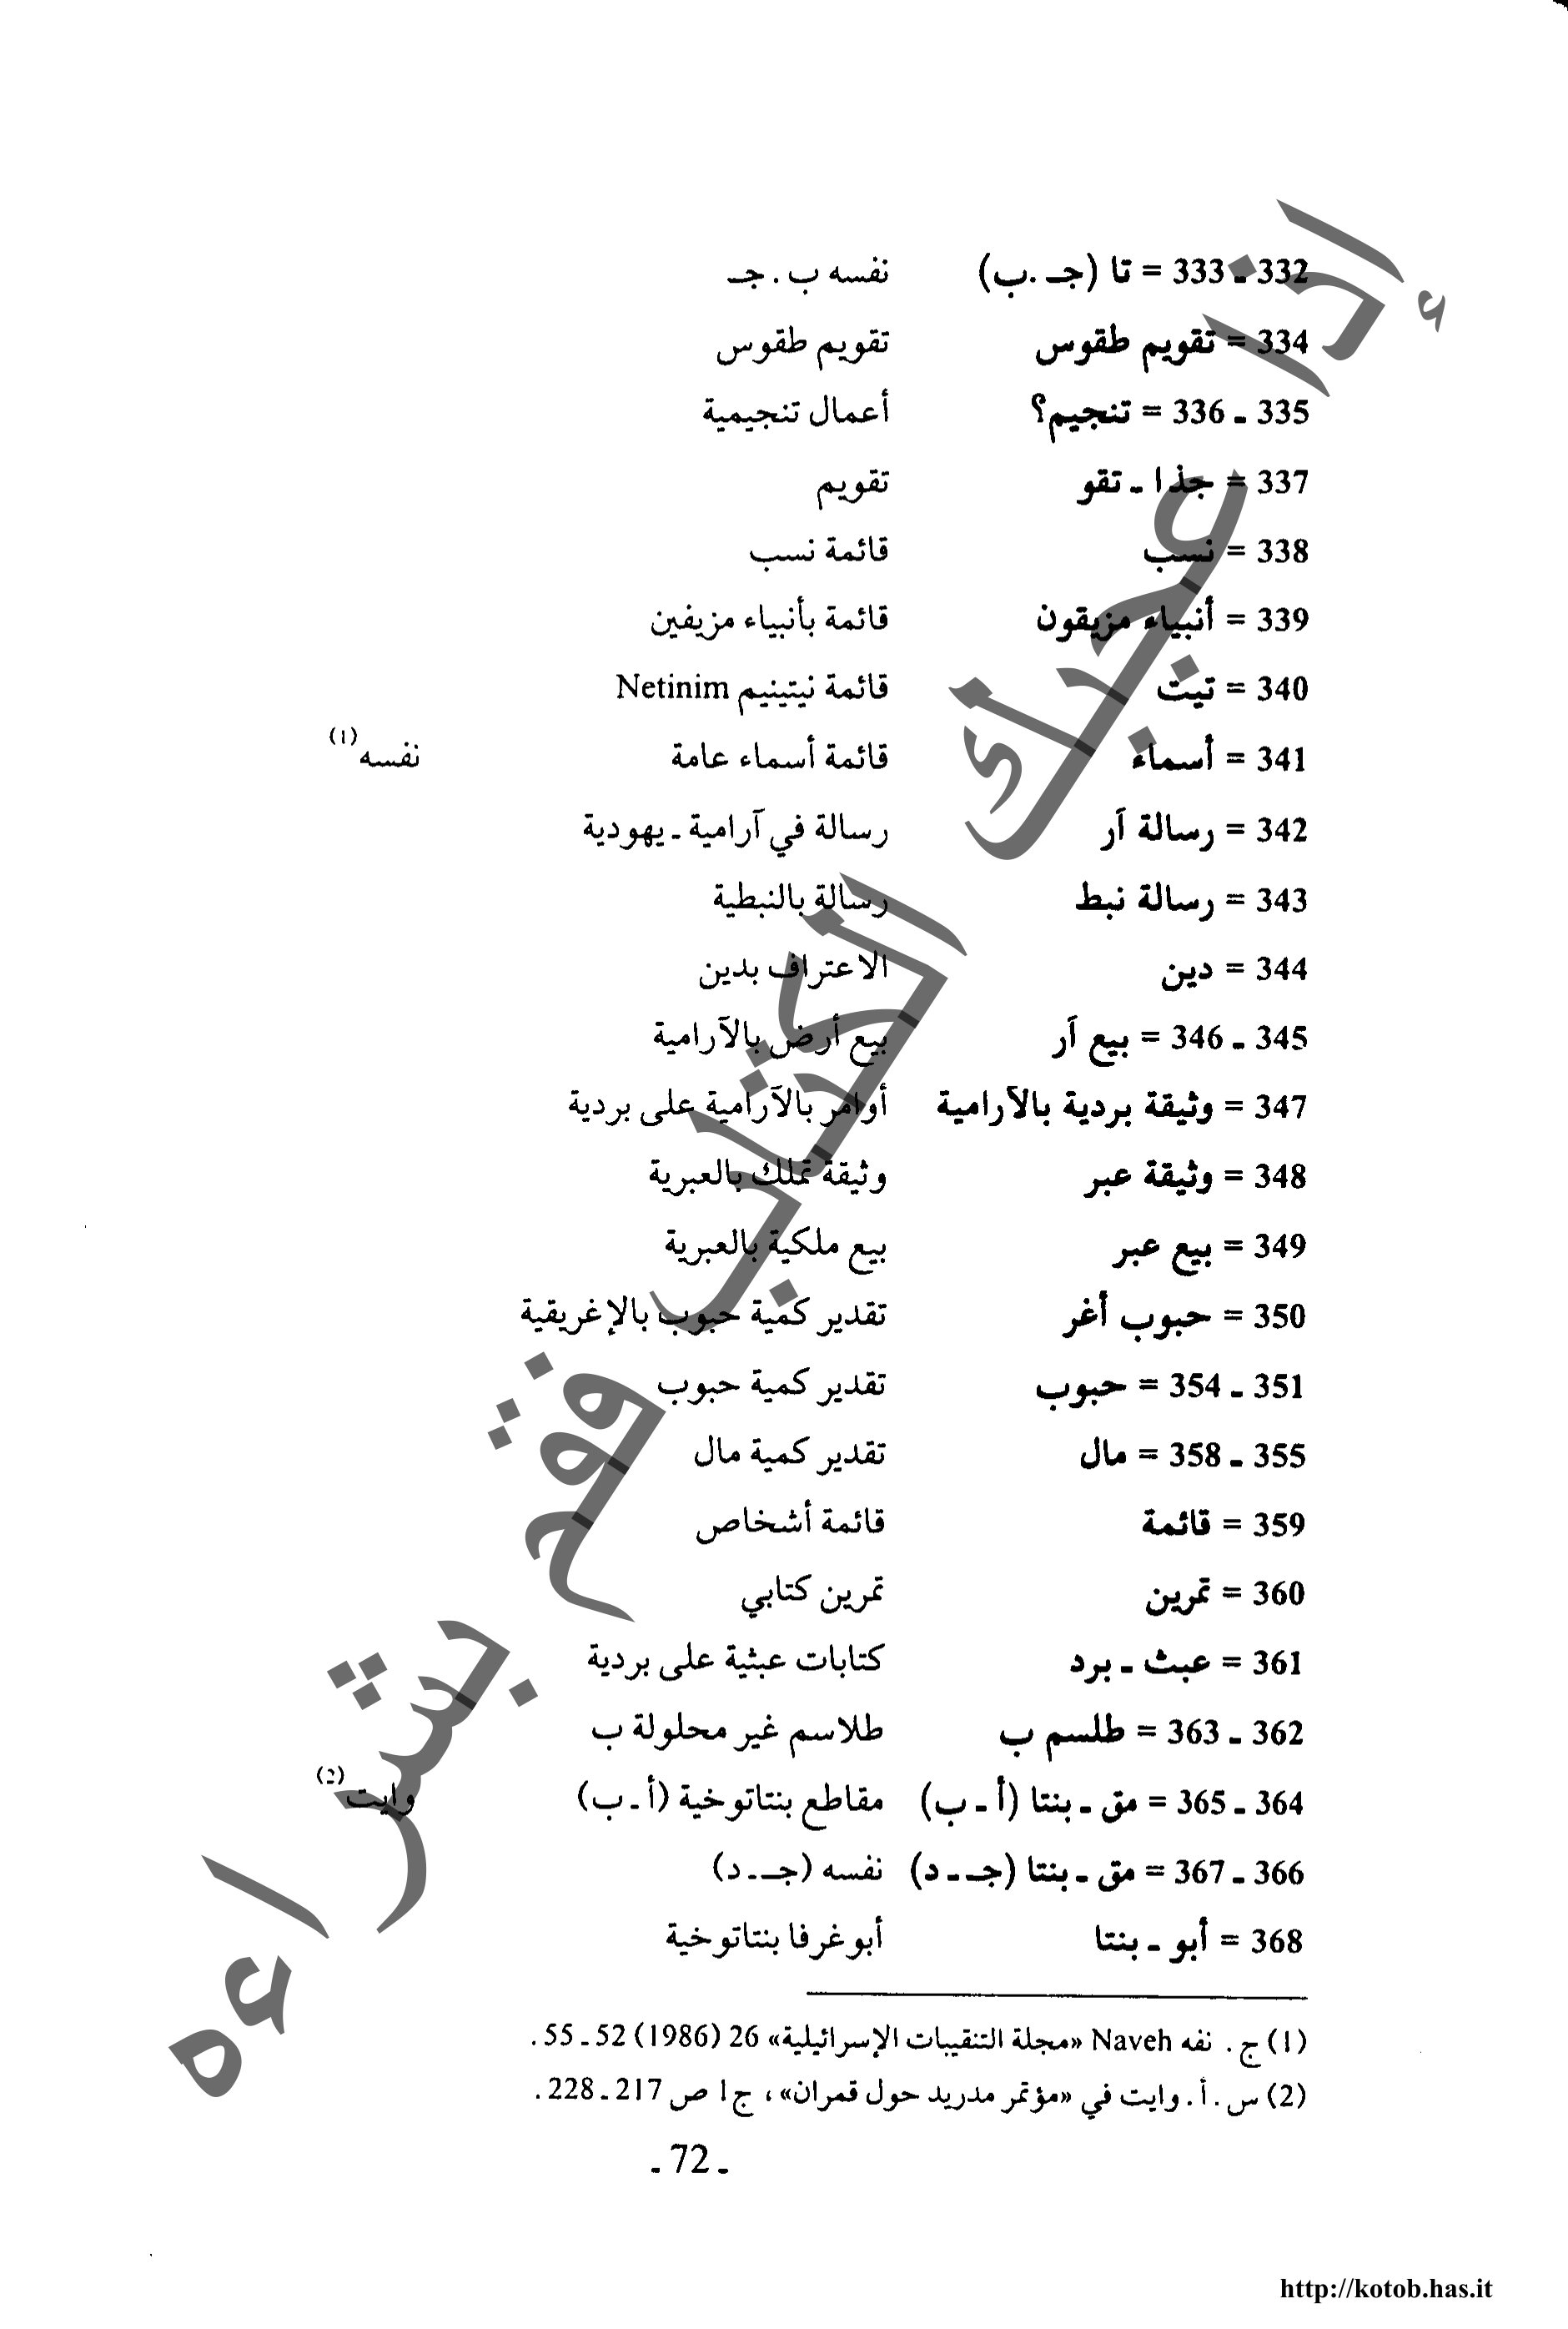 332 ـ 333 = تا (جـ .ب) نفسه ب . جـ
334 = تقويم طقوس تقويم طقوس
335 ـ 336 = تنجيم؟ أعمال تنجيمية
337 = جذا ـ تقو تقويم
338 = نسب قائمة نسب
339 = أنبياء مزيقون قائمة بأنبياء مزيفين
340 = تيث قائمة نيتينيم Netinim
341 = أسماء قائمة أسماء عامة نفسه(1)
342 = رسالة آر رسالة في آرامية ـ يهودية
343 = رسالة نبط رسالة بالنبطية
344 = دين الاعتراف بدين
345 ـ 346 = بيع آر بيع أرض بالآرامية
347 = وثيقة بردية بالآرامية أوامر بالآرامية على بردية
348 = وثيقة عبر وثيقة تملك بالعبرية
349 = بيع عبر بيع ملكية بالعبرية
350 = حبوب أغر تقدير كمية حبوب بالإغريقية
351 ـ 354 = حبوب تقدير كمية حبوب
355 ـ 358 = مال تقدير كمية مال
359 = قائمة قائمة أشخاص
360 = تمرين تمرين كتابي
361 = عبث ـ برد كتابات عبثية على بردية
362 ـ 363 = طلسم ب طلاسم غير محلولة ب
364 ـ 365 = مق ـ بنتا (أ ـ ب) مقاطع بنتاتوخية (أ ـ ب) وايت(2)
366 ـ 367 = مق ـ بنتا (جـ ـ د) نفسه (جـ ـ د)
368 = أبو ـ بنتا أبوغرفا بنتاتوخية
(1) ج . نفه Naveh «مجلة التنقيبات الإسرائيلية» 26 (1986) 52 ـ 55 .
(2) س . أ . وايت في «مؤتمر مدريد حول قمران» ، ج1 ص 217 ـ 228 .
ـ 72 ـ
إذا أعجبك الكتاب رفقة بشراءه
http://kotob.has.it